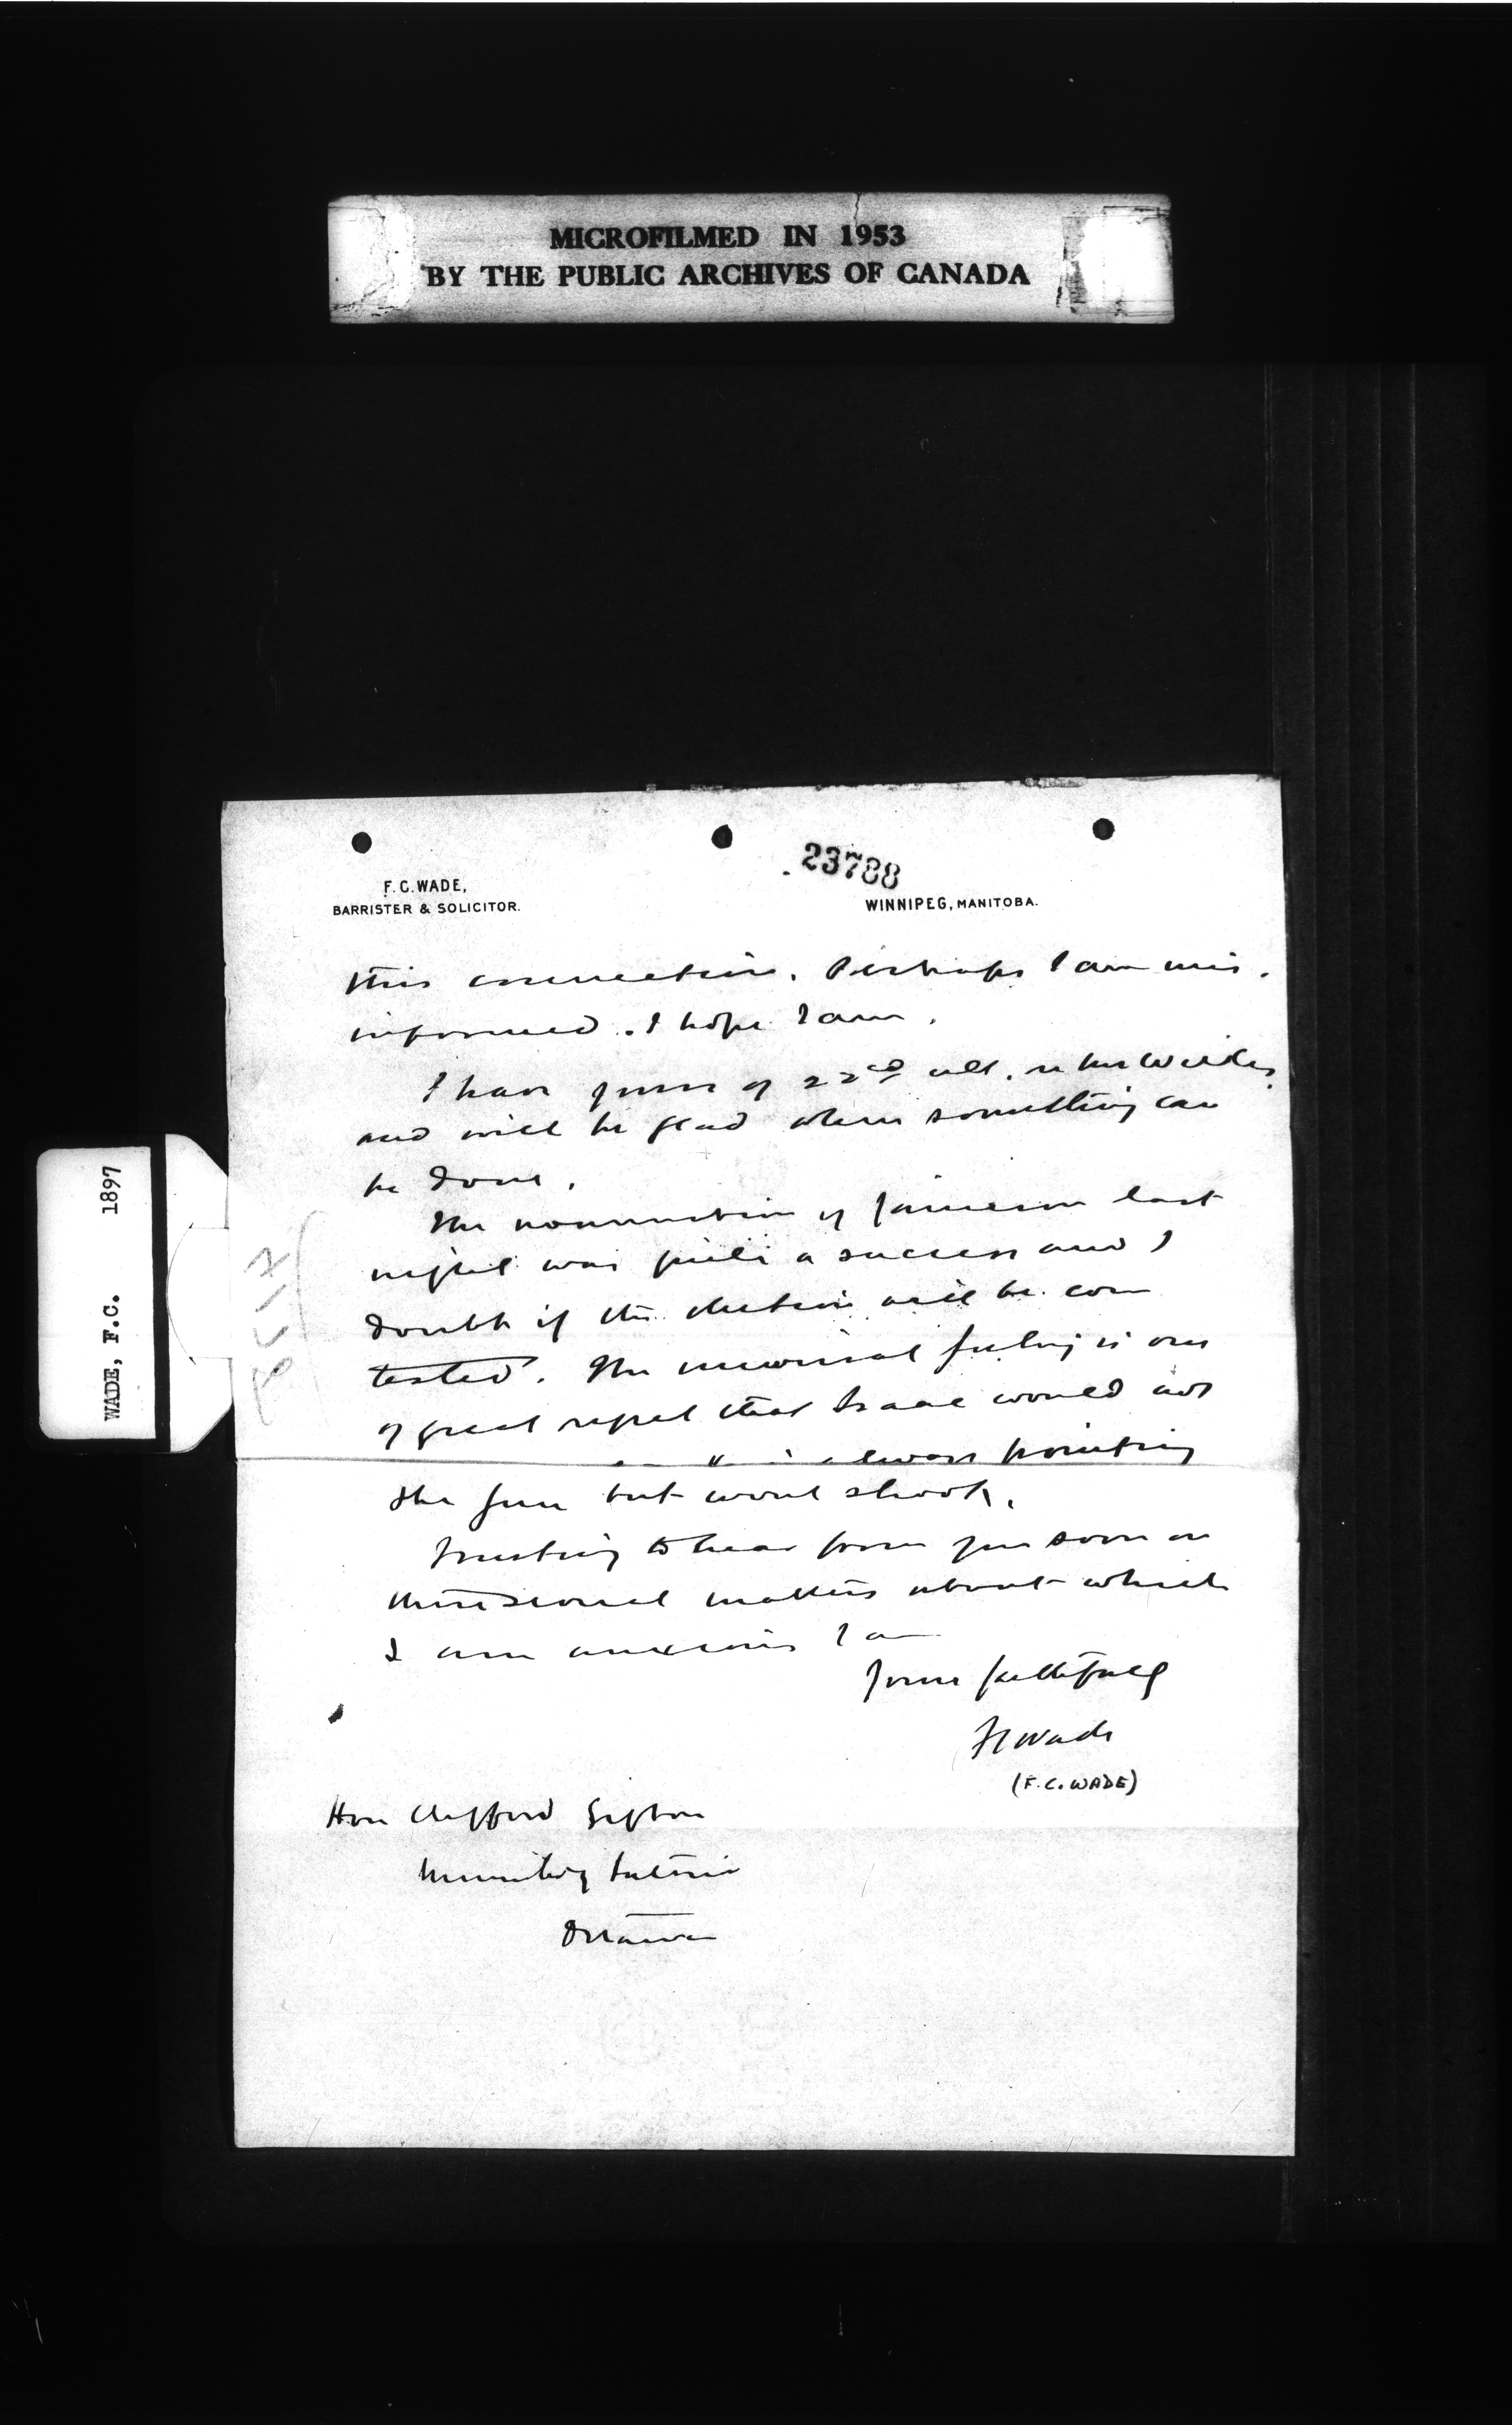 MICROFILMED IN 1953
BY THE PUBLIC ARCHIVES OF CANADA
WADE, F.C. 1897
23788
F. C. WADE,
BARRISTER & SOLICITOR.
WINNIPEG, MANITOBA.
this connection. Perhaps I am mis-
informed. I hope I am.
I have yours of 22nd ult. re
and will be glad when something can
be done.
The nomination of Jameson last
night was quite a success and I
doubt if the election will be con
tested. The universal feeling is one
of great regret that Isaac would not
always pointing
the gun but wont shoot.
Trusting to hear from you soon on
the several matters about which
I am anxious I am
Yours faithfully
FC Wade
(F.C. WADE)
Hon Clifford Sifton
Minister of Interior
Ottawa